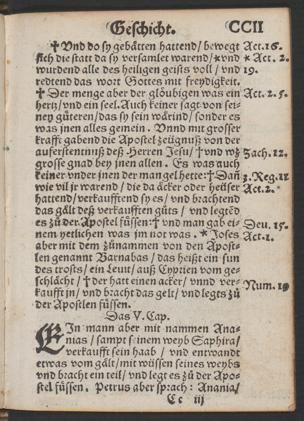 Geschicht. CCII
† Vnd do sy gebätten hattend/ bewegt Act.16.
sich die statt da sy versamlet warend/ * vnd * Act. 2.
wurdend alle des heiligen geists voll / vnd 19.
redtend das wort Gottes mit freydigkeit.
† Der menge aber der glöubigen was ein Act. 2. 5.
hertz/ vnd ein seel. Auch keiner sagt von sei-
nen güteren/ das sy sein wärind/ sonder es
was jnen alles gemein. Vnnd mit grosser
krafft gabend die Apostel zeügnuß von der
auferstentnuß deß Herren Jesu/ † vnd wz Zach. 12.
grosse gnad bey jnen allen. Es was auch
keiner vnder jnen der mangel hette: † Dañ 3. Reg. 11
wie vil jr warend/ die da äcker oder heüser Act. 2.
hattend/ verkaufftend sy es/ vnd brachtend
das gält deß verkaufften gůts / vnd legtẽd
es zů der Apostel füssen † vnd man gab ei- Deu. 15.
nem yetlichen was jm not was. * Joses Act. 1.
aber mit dem zůnammen von den Apost-
len genannt Barnabas/ das heißt ein sun
des trosts/ ein Leuit/ auß Cyprien vom ge-
schlächt/ † der hatt einen acker/ vnnd ver- Num. 18
kaufft jn/ vnd bracht das gelt/ vnd legts zů
der Apostlen füssen.
Das V. Cap.
EIn mann aber mit nammen Ana-
nias / sampt seinem weyb Saphira/
verkaufft sein haab / vnd entwandt
etwas vom gält/ mit wüssen seines weybs
vnd bracht ein teil/ vnd legt es zů der Apo-
stel füssen. Petrus aber sprach: Anania/
Cc iij